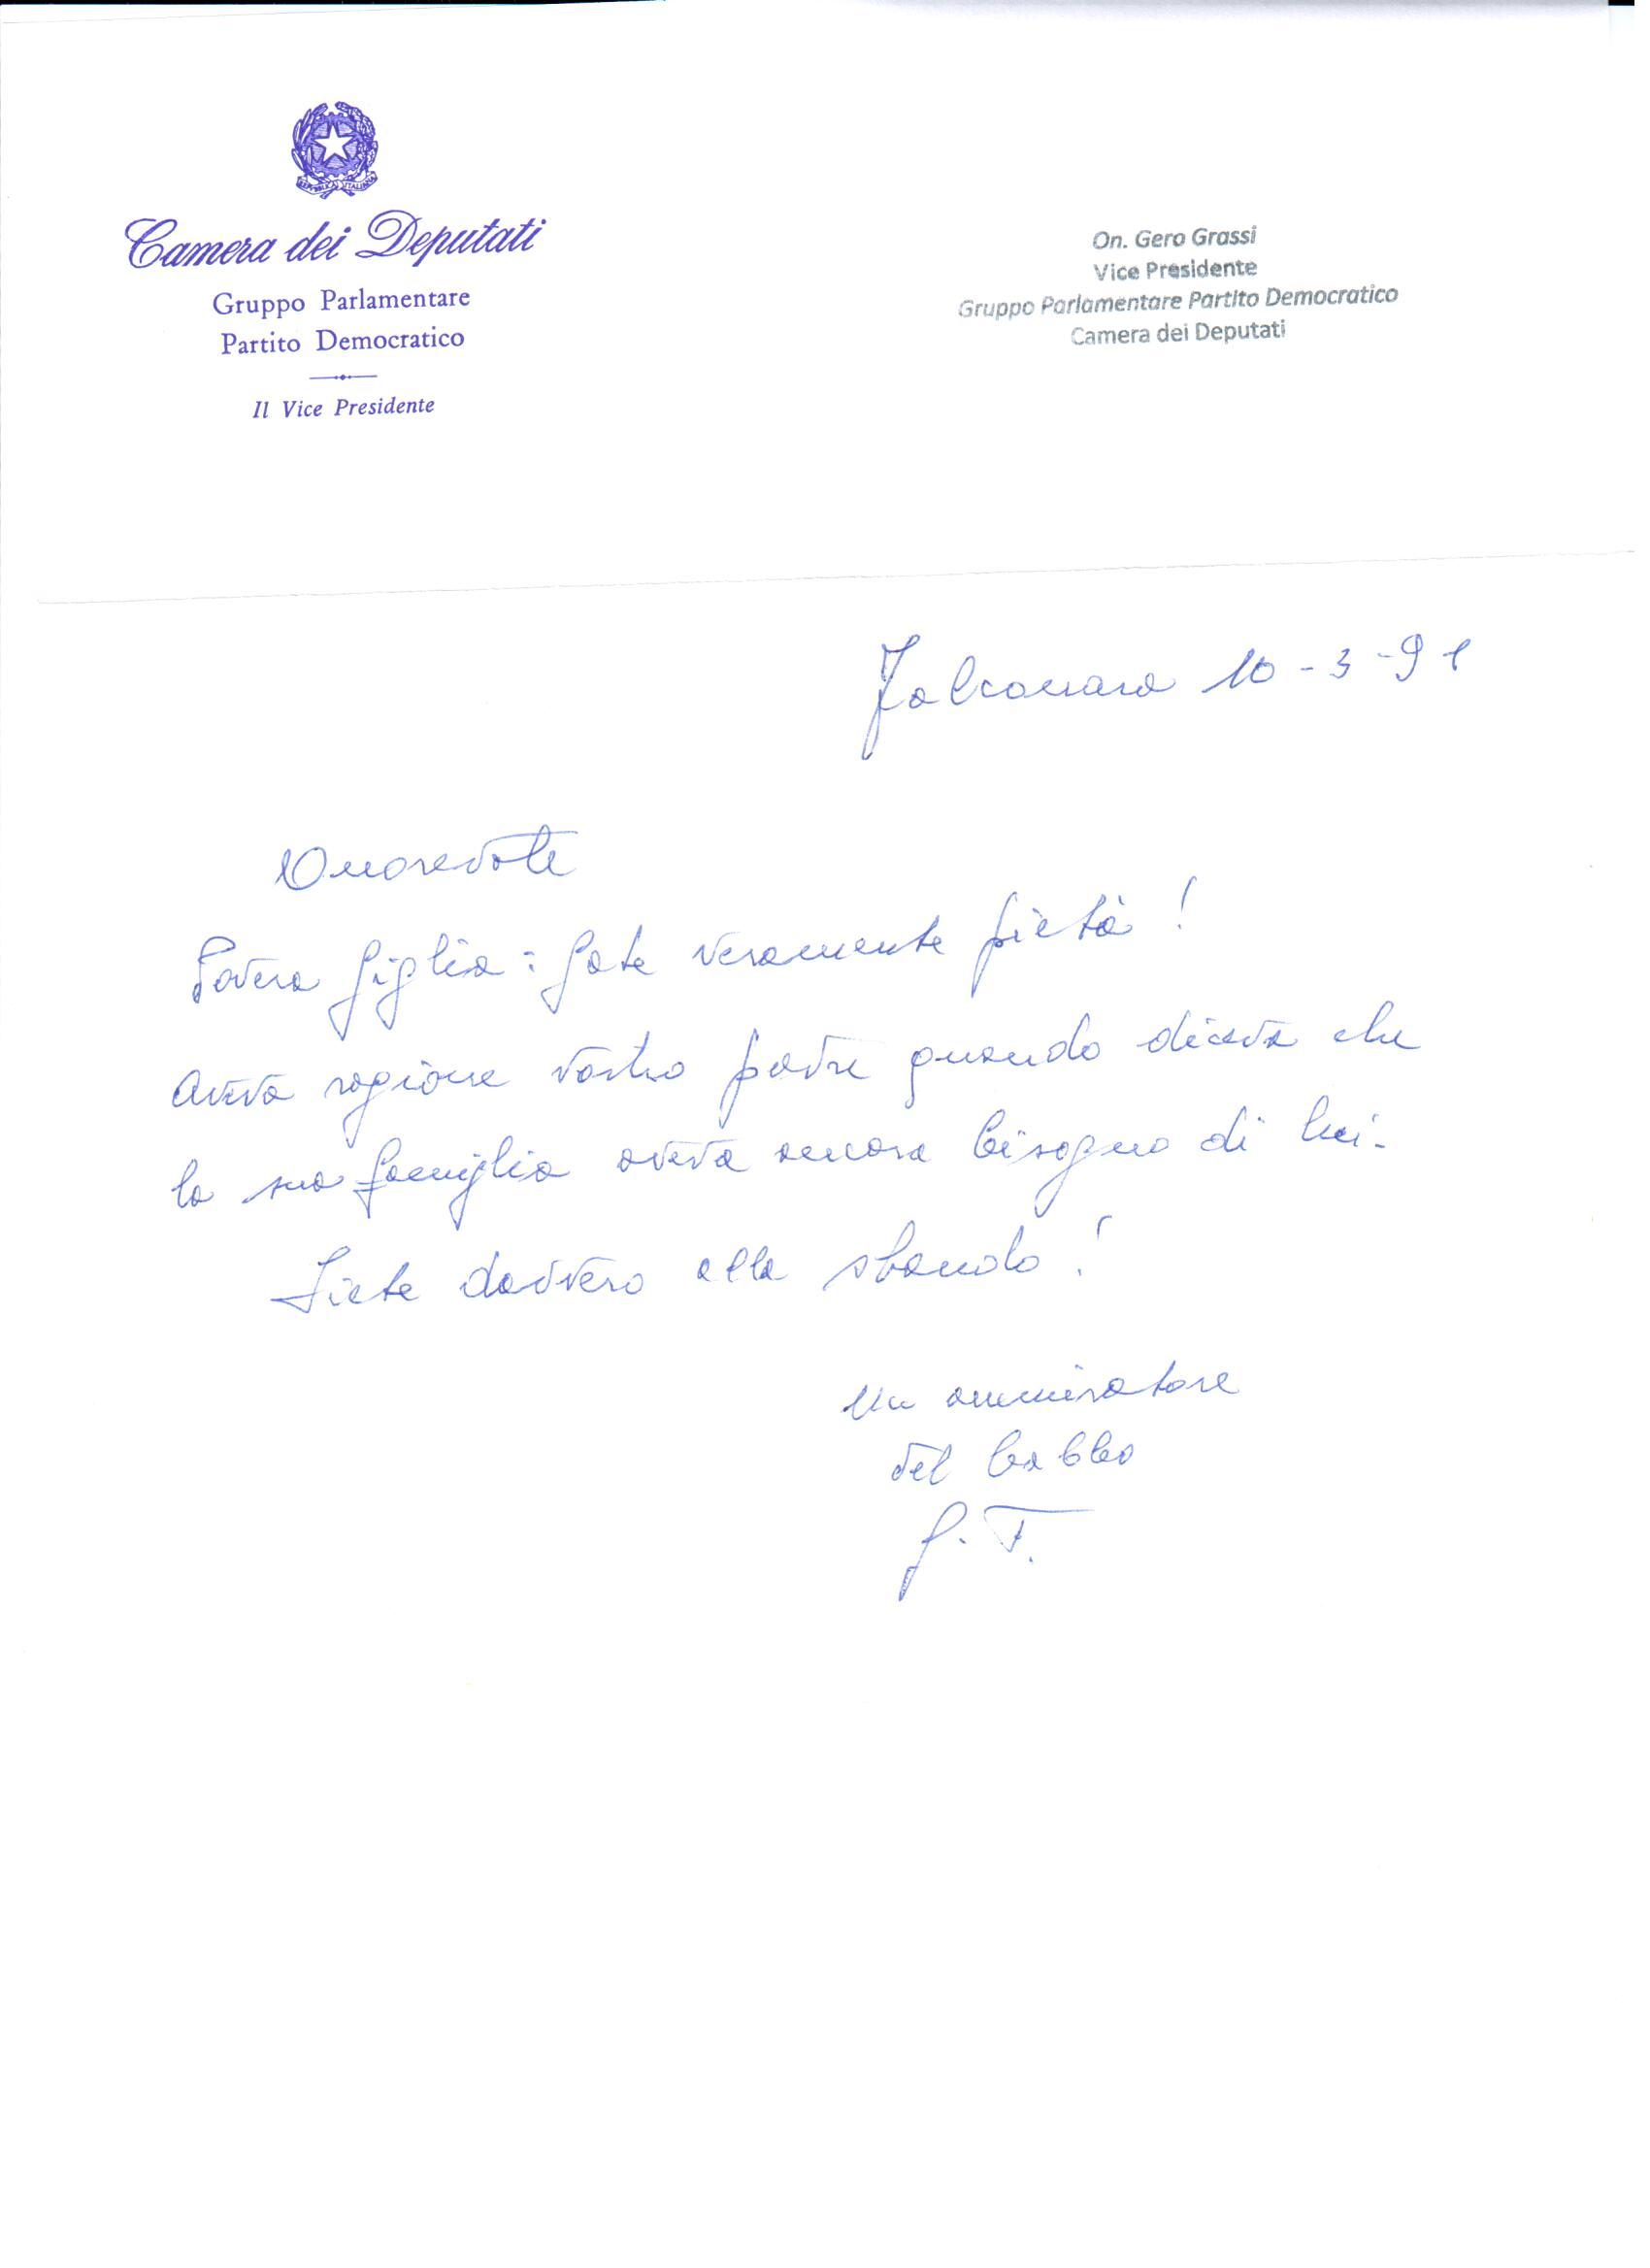 REPVBBLICA ITALIANA
Camera dei Deputati
Gruppo Parlamentare
Partito Democratico
Il Vice Presidente
On. Gero Grassi
Vice Presidente
Gruppo Parlamentare Partito Democratico
Camera dei Deputati
Falconara 10-3-91
Onorevole
Povera figlia: fate veramente pietà!
Aveva ragione vostro padre quando diceva che
la sua famiglia aveva ancora bisogno di lui-
Siete davvero alla sbando!
Un ammiratore
del babbo
G. T.